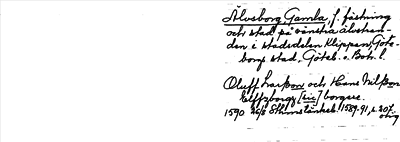 Älvsborg, Gamla, f. fästning
och stad på vänstra älvstran-
den i stadsdelen Klippan, Göte-
borgs stad, Göteb. o. Boh. l.
Oluff Larsson och Hans Nilsson
Elffzborgz [sic] borgare.
1590 26/8 Sthms tänkeb. 1589-91, s. 207.